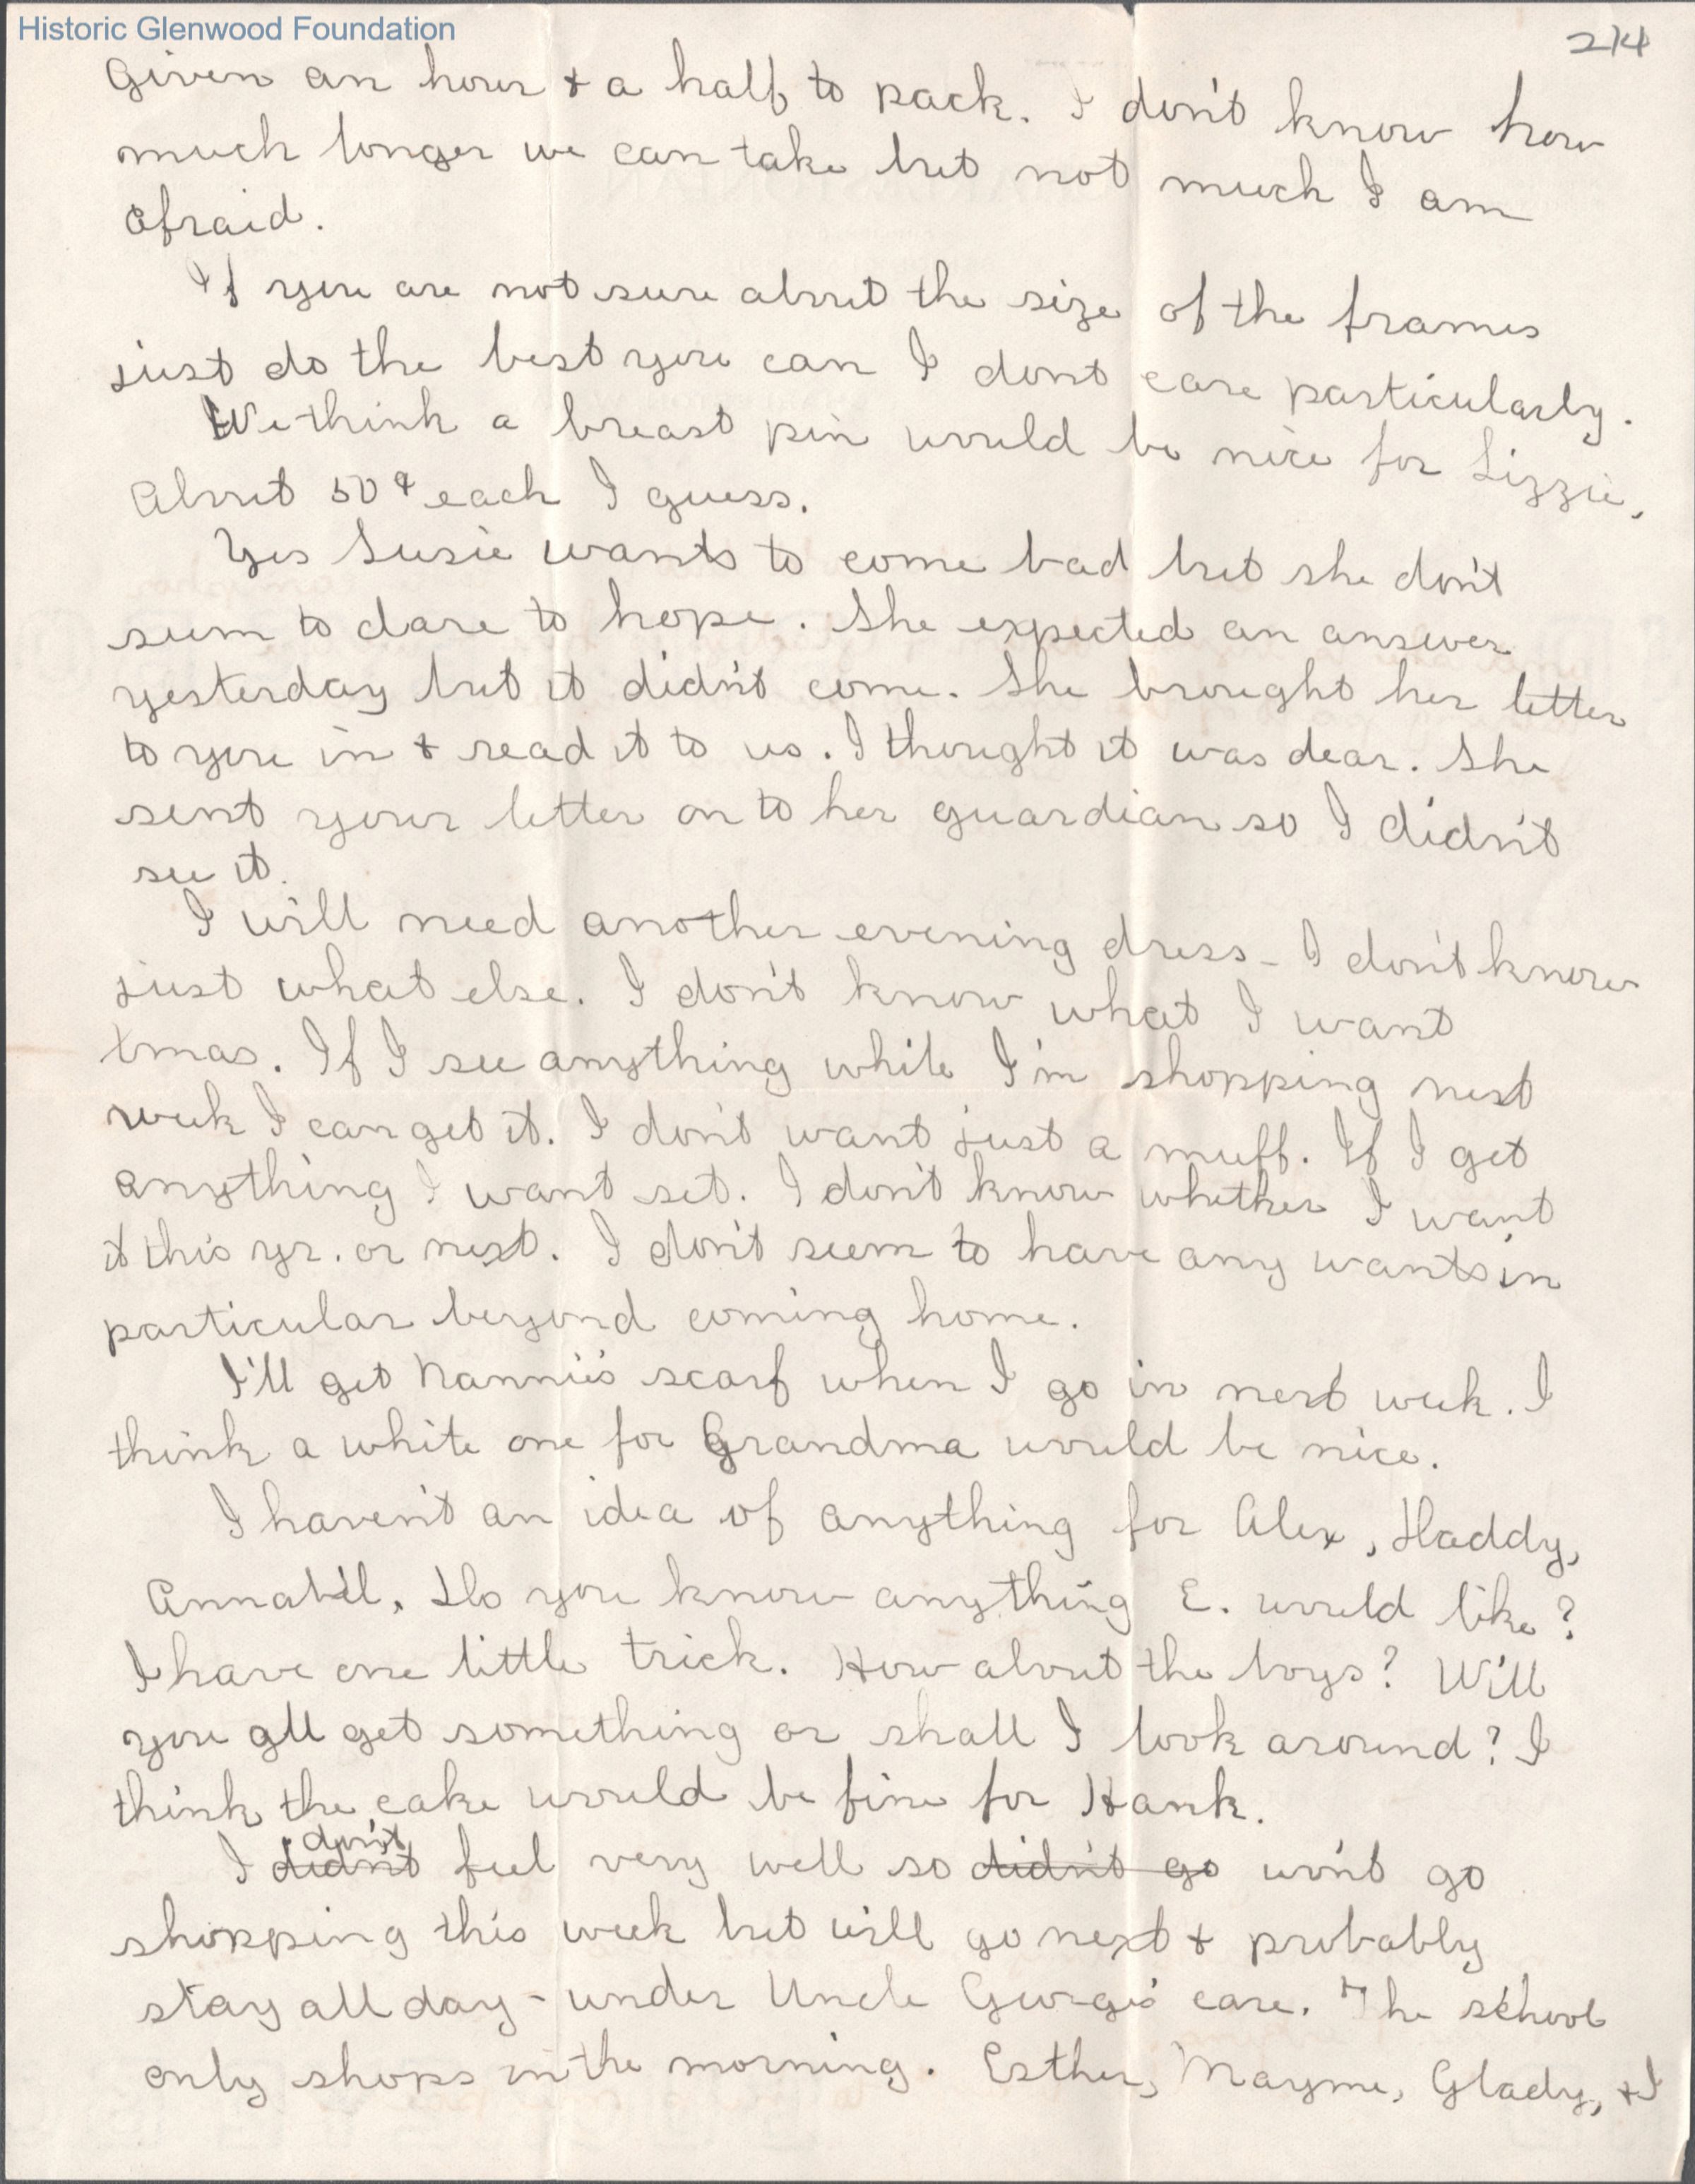 Historic Glenwood Foundation
214
Given an hour & a half to pack. I don't know how
much longer we can take but not much I am
afraid.
If you are not sure about the size of the frames
just do the best you can I dont care particularly.
We think a breast pin would be nice for Lizzie.
About 50¢ each I guess.
Yes Susie wants to come bad but she don't
seem to dare to hope. She expected an answer
yesterday but it didn't come. She brought her letter
to you in & read it to us. I thought it was dear. She
sent your letter on to her guardian so I didn't
see it.
I will need another evening dress - I don't know
just what else. I don't know what I want
Xmas. If I see anything while I'm shopping next
week I can get it. I don't want just a muff. If I get
anything I want set. I don't know whether I want
it this yr. or next. I don't seem to have any wants in
particular beyond coming home.
I'll get Nannie's scarf when I go in next week. I
think a white one for Grandma would be nice.
I haven't an idea of anything for Alex, Haddy,
Annabel. Do you know anything E. would like?
I have one little trick. How about the boys? Will
you all get something or shall I look around? I
think the cake would be fine for Hank.
don't
I didn't feel very well so didn't go won't go
shopping this week but will go next & probably
stay all day - under Uncle George's care. The school
only shops in the morning. Esther, Mayme, Glady, & I